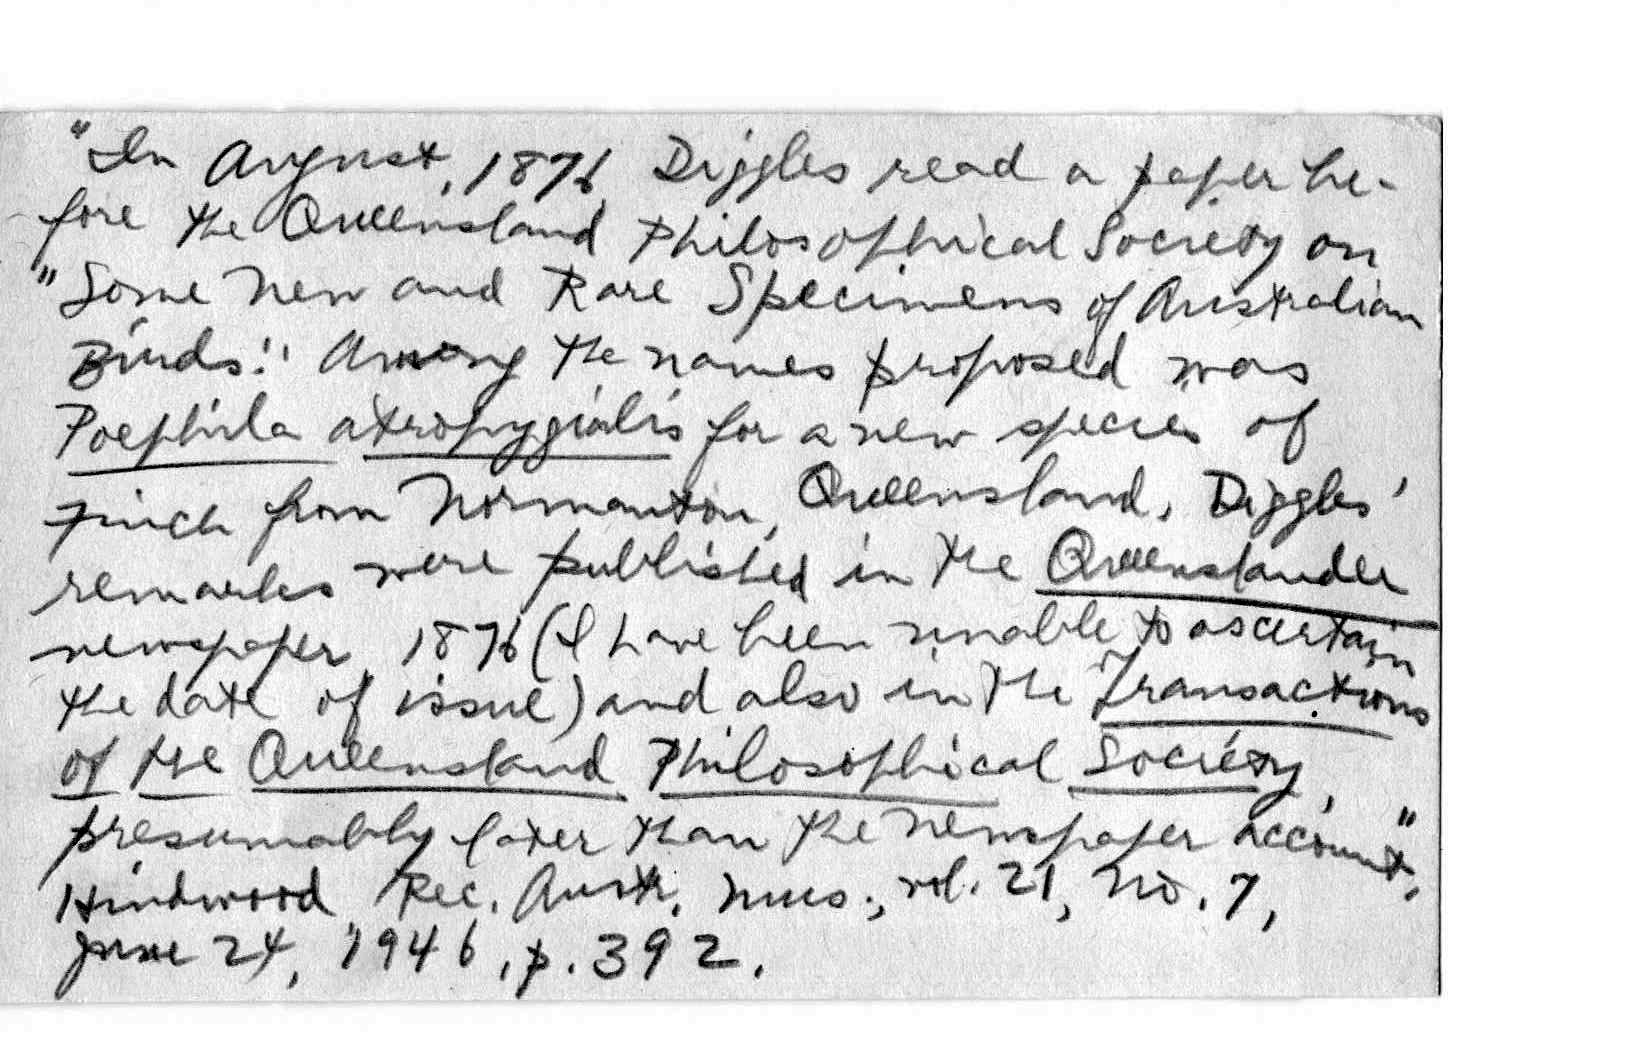 "In August, 1876 Diggles read a paper be-
fore the Queensland Philosophical Society on
"Some New and Rare Specimens of Australian
Birds." Among the names proposed was
Poephila atropygialis for a new species of
finch from Normanton, Queensland. Diggles'
remarks were published in the Queenslander
newspaper, 1876 (I have been unable to ascertain
the date of issue) and also in the Transactions
of the Queensland Philosophical Society,
presumably later than the newspaper account."
Hindwood, Rec. Austr. Mus., vol. 21, no. 7,
June 24, 1946, p. 392.